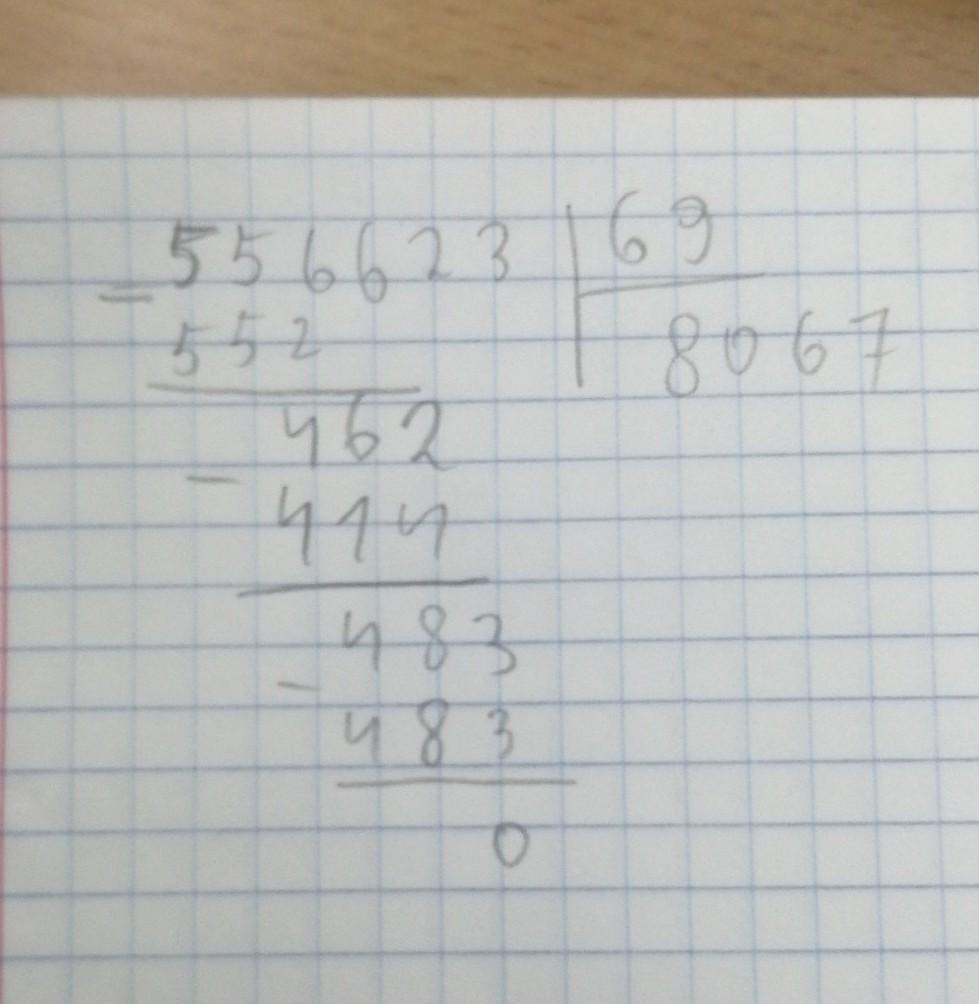 556623 69
552 8067
462
414
483
483
0